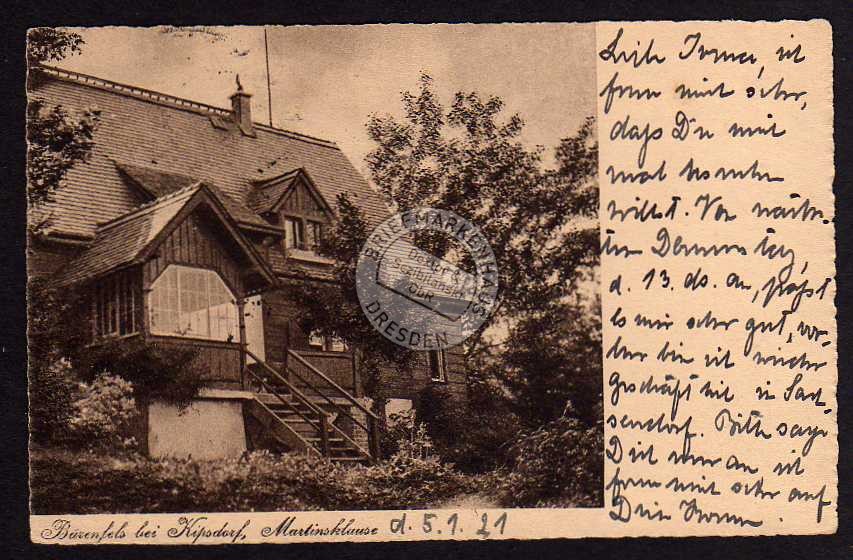 Liebe Irma, ich
freue mich sehr,
daß Du mich
mal besuchen
willst. Von nächs-
ten Donnerstag,
d. 13. ds. an, paßt
es mir sehr gut, vor-
her bin ich wieder
geschäftlich in
Bitte sage
Dich nur an ich
freue mich sehr auf
Dein Kommen.
Bärenfels bei Kipsdorf, Martinsklause d. 5.1.21
BRIEFMARKENHAUS
DRESDEN